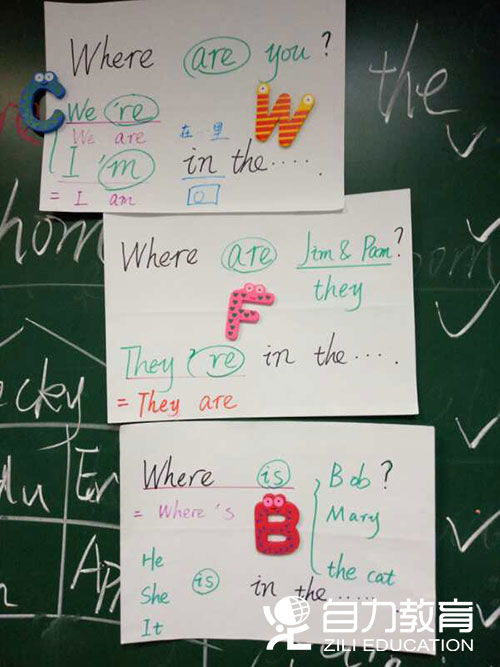 Where are you?
We 're
We are
I 'm in the.....
在…里
= I am
C
W
the
Where are Jim & Pam?
they
F
They 're in the.....
= They are
Where is Bob?
= Where's
Mary
the cat
B
He
She is in the......
It
自力教育
ZILI EDUCATION